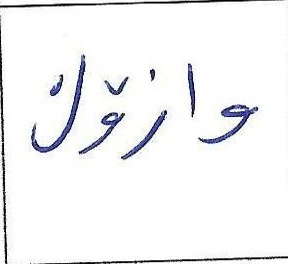 وازۆڵ